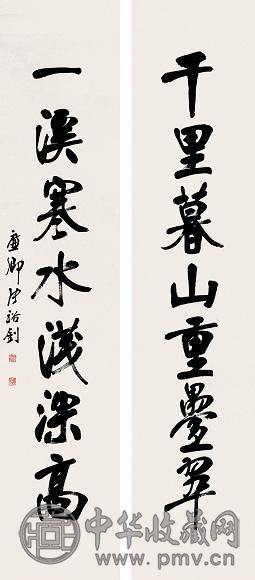 千里暮山重疊翠
一溪寒水淺深高
廉卿張裕釗
中华收藏网
www.pmv.cn